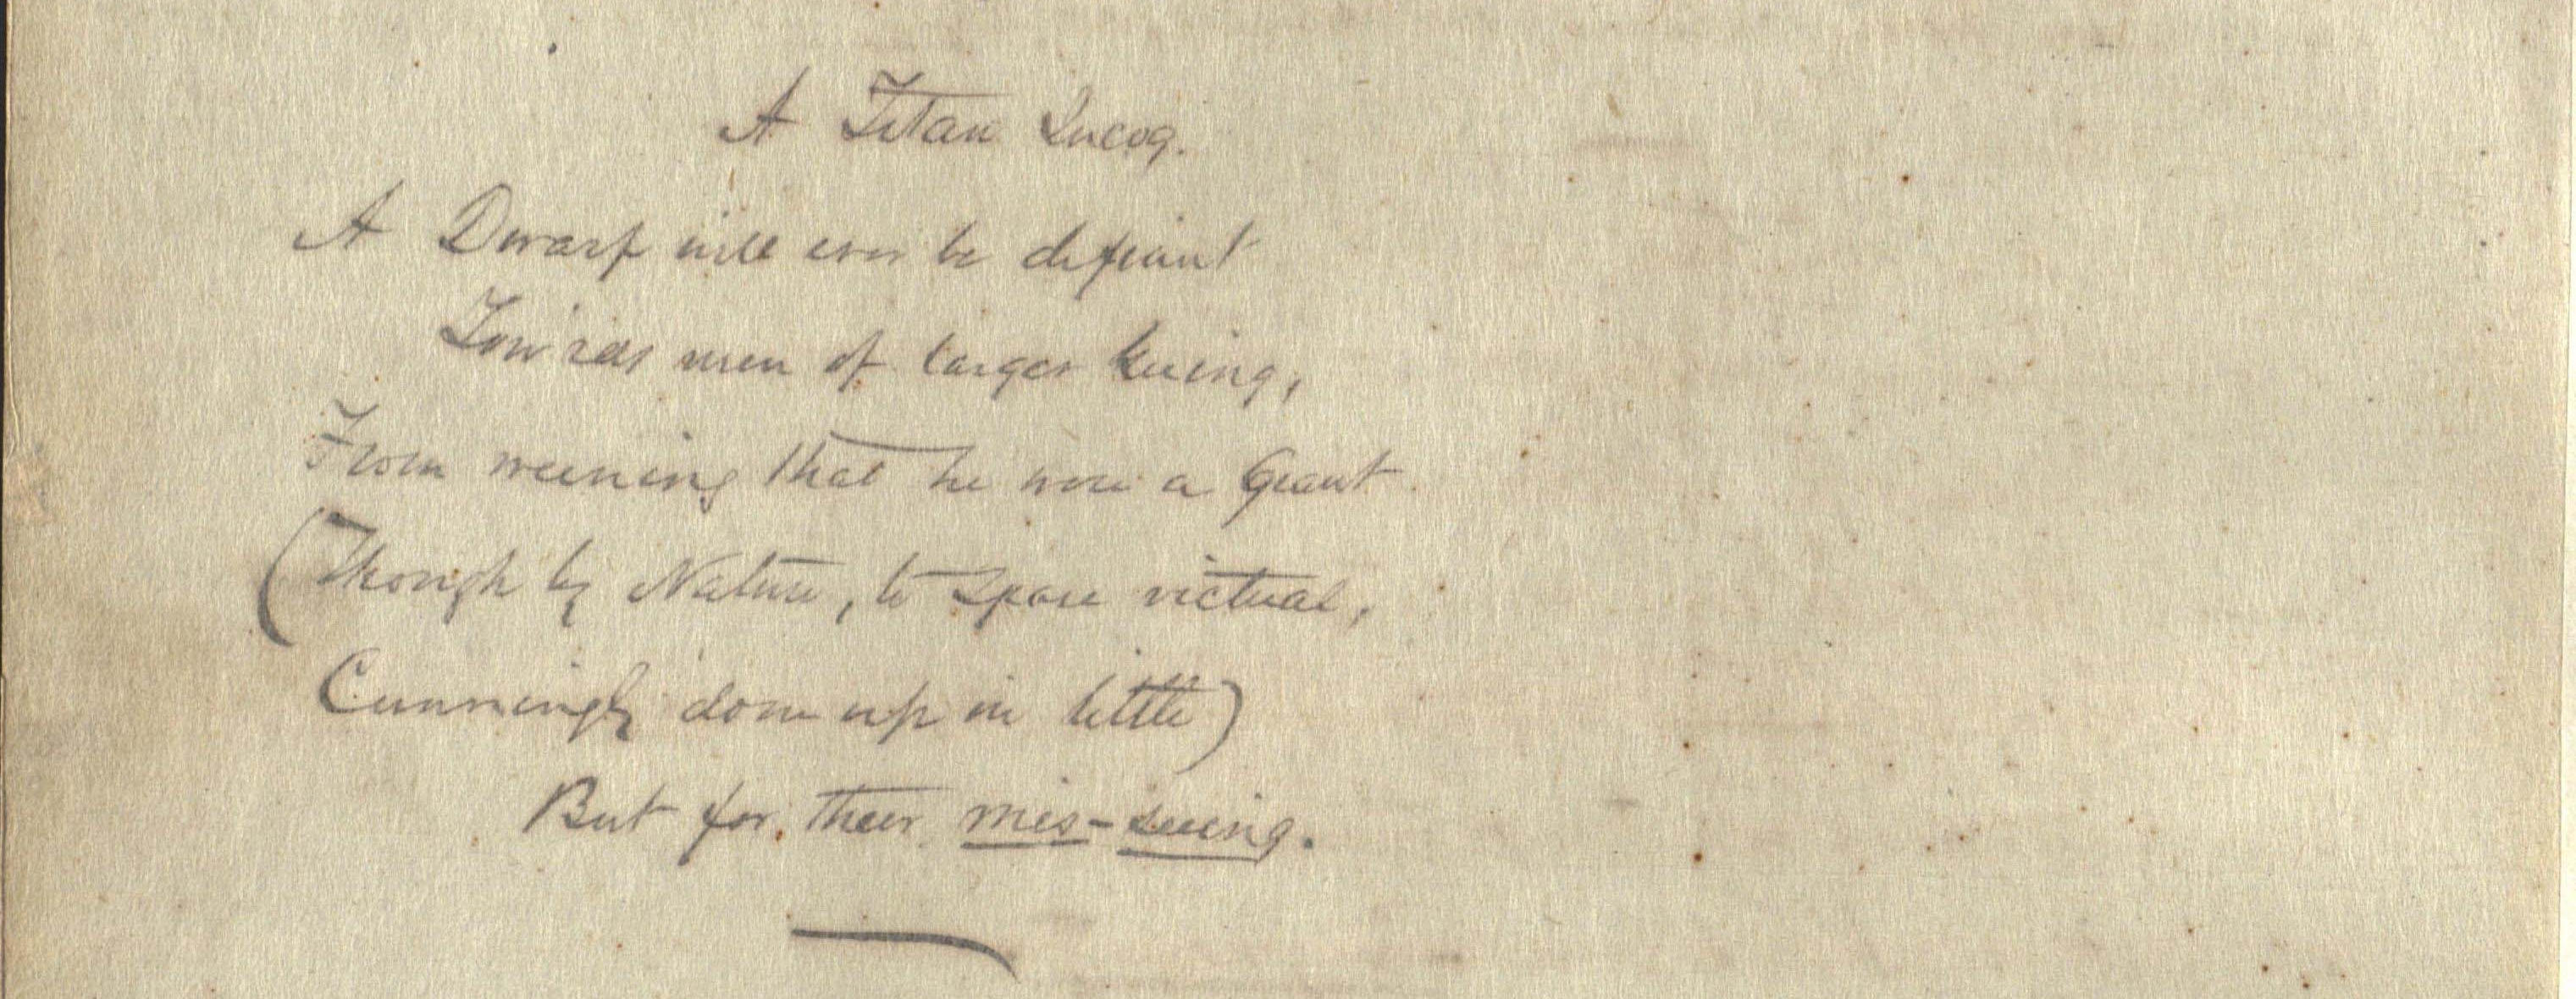 A Titan Incog.
A Dwarf will ever be defiant
Tow'rds men of larger being,
From weening that he were a Giant
(Though by Nature, to spare victual,
Cunningly done up in little)
But for their mis-seeing.